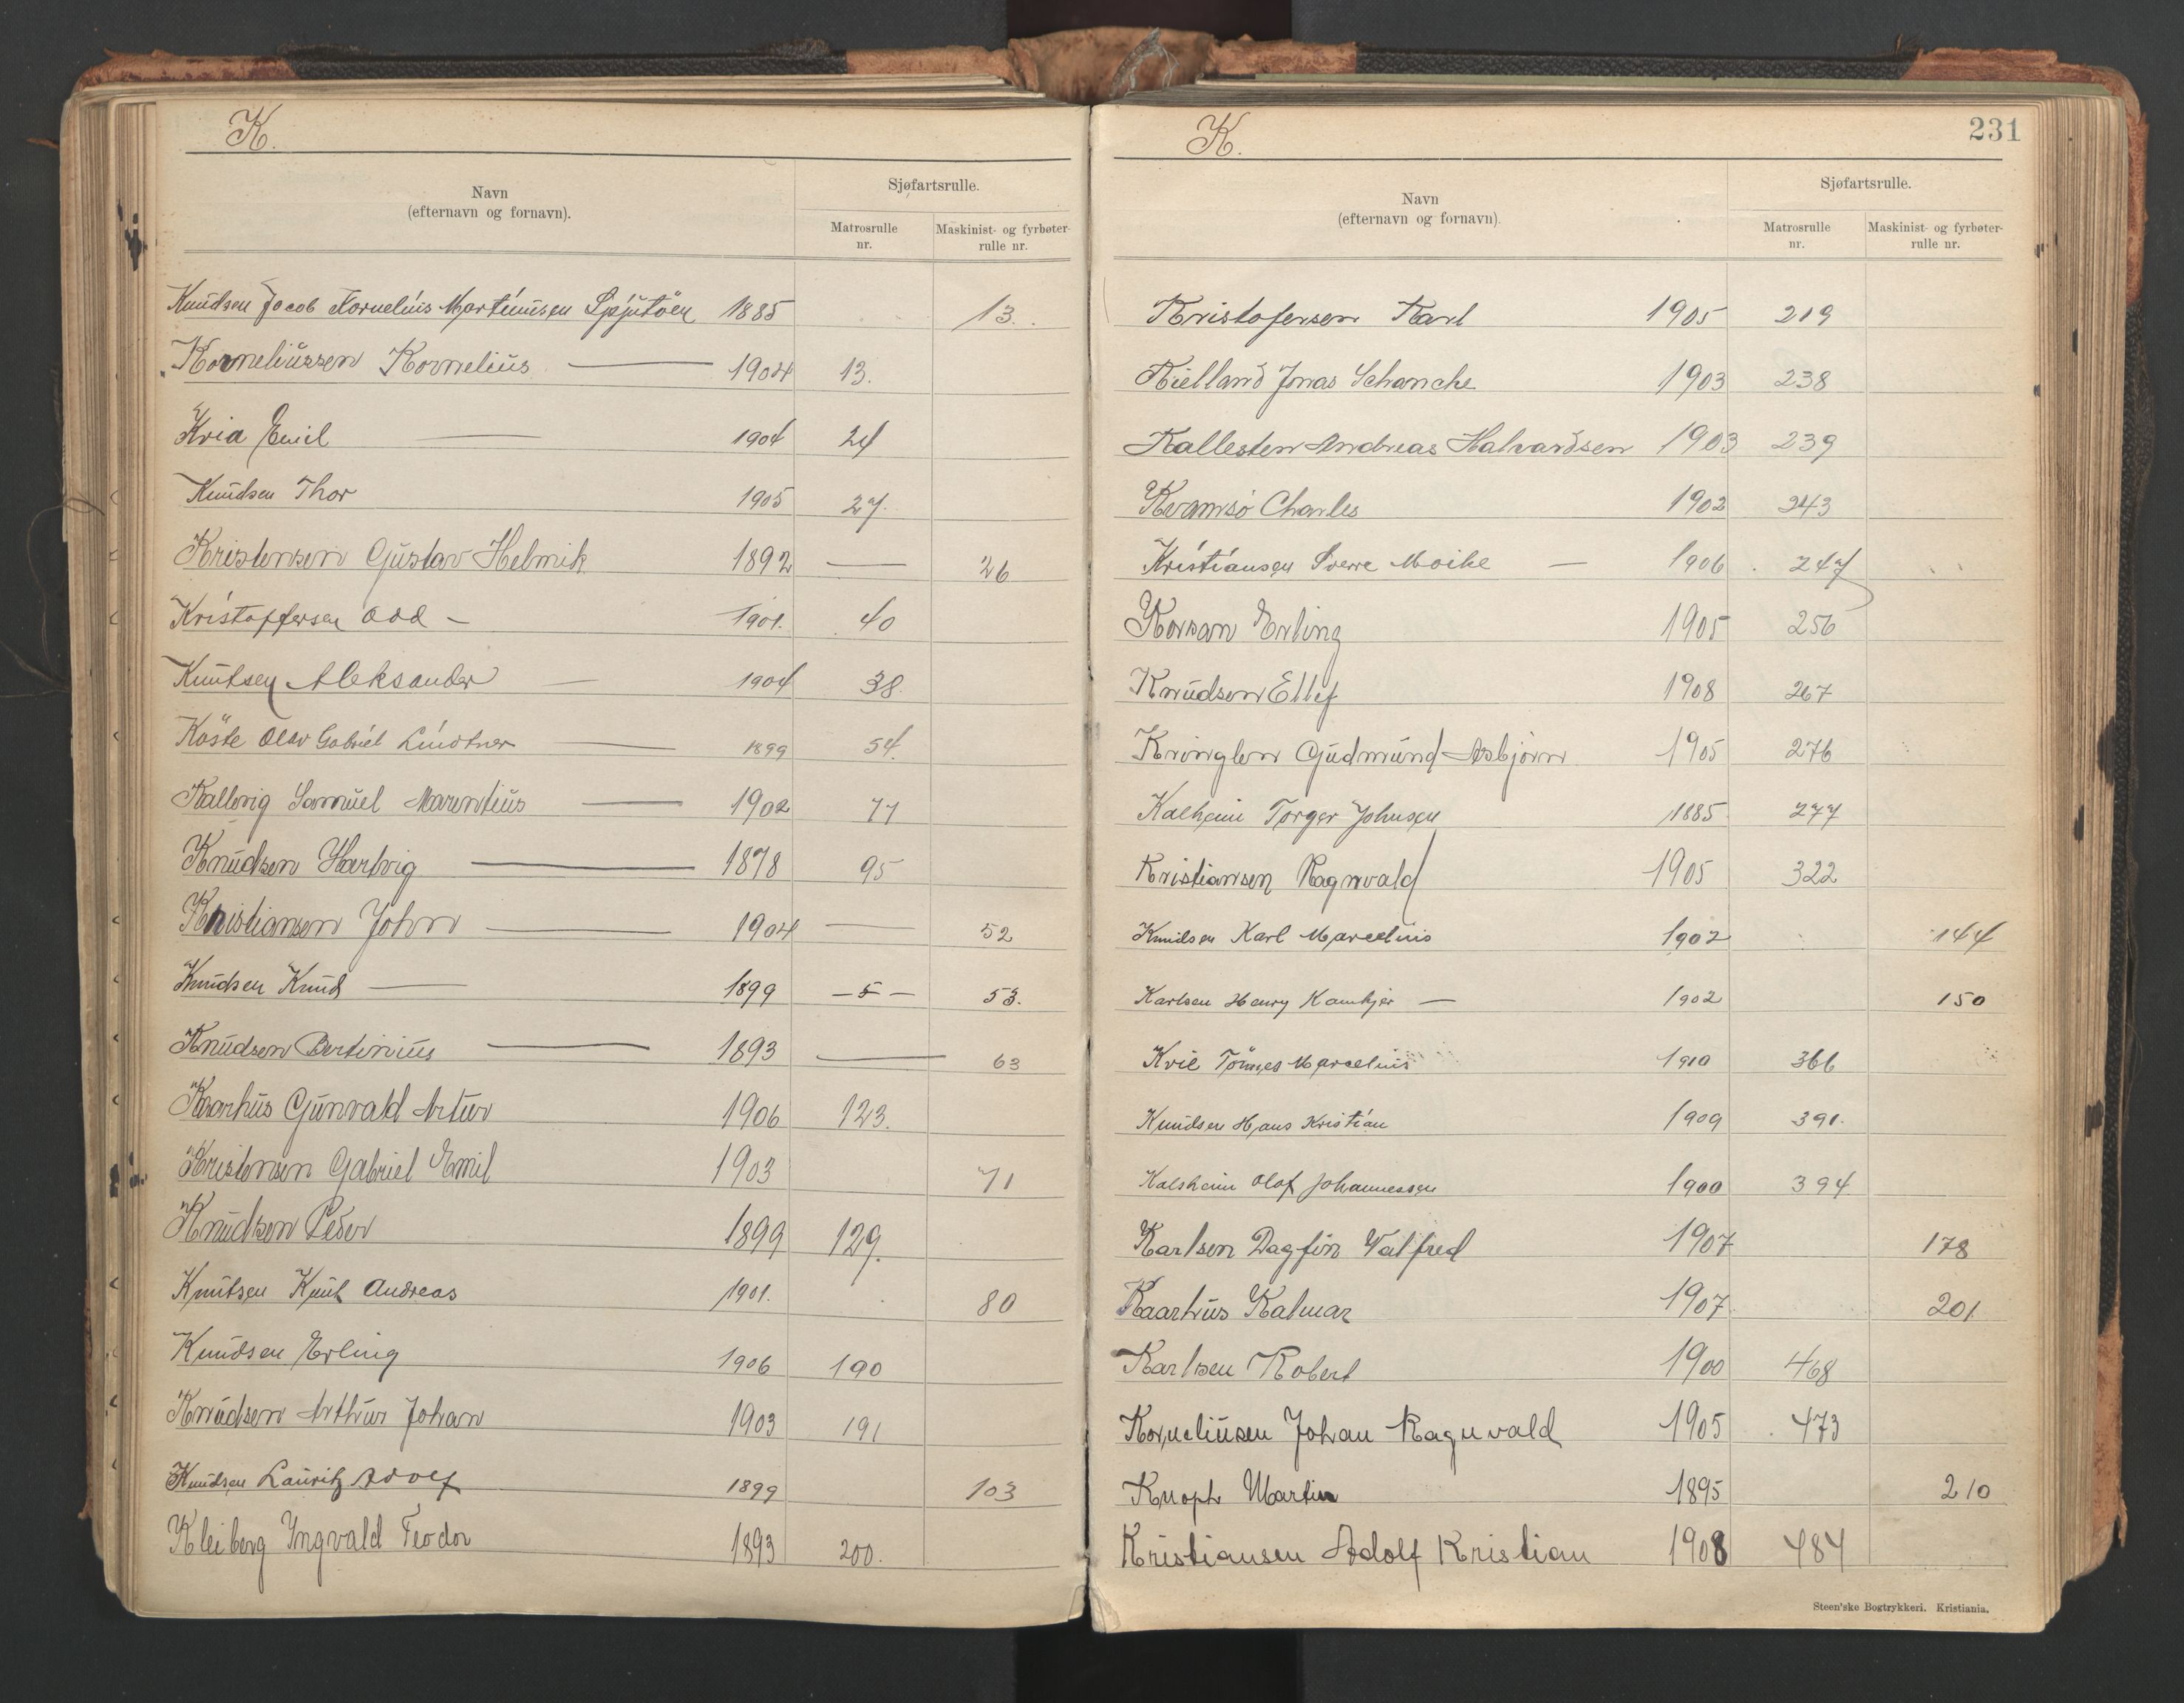 K.
Navn
(efternavn og fornavn).
Sjøfartsrulle.
Matrosrulle
nr.
Maskinist- og fyrbøter-
rulle nr.
Knudsen Jacob Kornelius Martinusen 1885 13.
Korneliussen Kornelius — 1904 13.
Kria Emil — 1904 24
Knudsen Thor 1905 27.
Kristensen Gustav Helmik 1892 — 26
Kristoffersen Odd – 1901. 40
Knutsen Aleksander — 1904 38.
Köste Olav Gabriel Lindtner — 1899 54.
Kallevig Samuel Marentius — 1902 77
Knudsen Hartvig — 1878 95
Kristiansen John — 1904 — 52
Knudsen Knud — 1899 — 5 — 53.
Knudsen Bertinius — 1893 — 63
Kaarhus Gunvald Artur 1906 123.
Kristensen Gabriel Emil 1903 71
Knudsen Peder 1899 129.
Knutsen Knut Andreas 1901. 80
Knudsen Erling 1906 190
Knudsen Arthur Johan 1903 191
Knudsen Lauritz Adolf 1899 103
Kleiberg Yngvald Teodor 1893 200.
K.
231
Navn
(efternavn og fornavn).
Sjøfartsrulle.
Matrosrulle
nr.
Maskinist- og fyrbøter-
rulle nr.
Kristofersen Karl 1905 219
Kielland Jonas Schanche 1903 238
Kallesten Andreas Halvardsen 1903 239
Kvamsö Charles 1902 243
Kristiansen Sverre Moike — 1906 247
Korsan Erling 1905 256
Knudsen Ellef 1908 267
Kringlen Gudmund Asbjörn 1905 276
Kalheim Torger Johnsen 1885 277
Kristiansen Ragnvald 1905 322
Knudsen Karl Marcelius 1902 144
Karlsen Henry Kamkjer — 1902 150
Kvie Tönnes Marcelius 1910 366
Knudsen Hans Kristian 1909 391.
Kalsheim Olaf Johannessen 1900 394
Karlsen Dagfin Valfred 1907 178
Kaarhus Kalmar 1907 201
Karlsen Robert 1900 468
Korneliusen Johan Ragnvald 1905 473
Knoph Martin 1895 210
Kristiansen Adolf Kristian 1908 484
Steen'ske Bogtrykkeri. Kristiania.